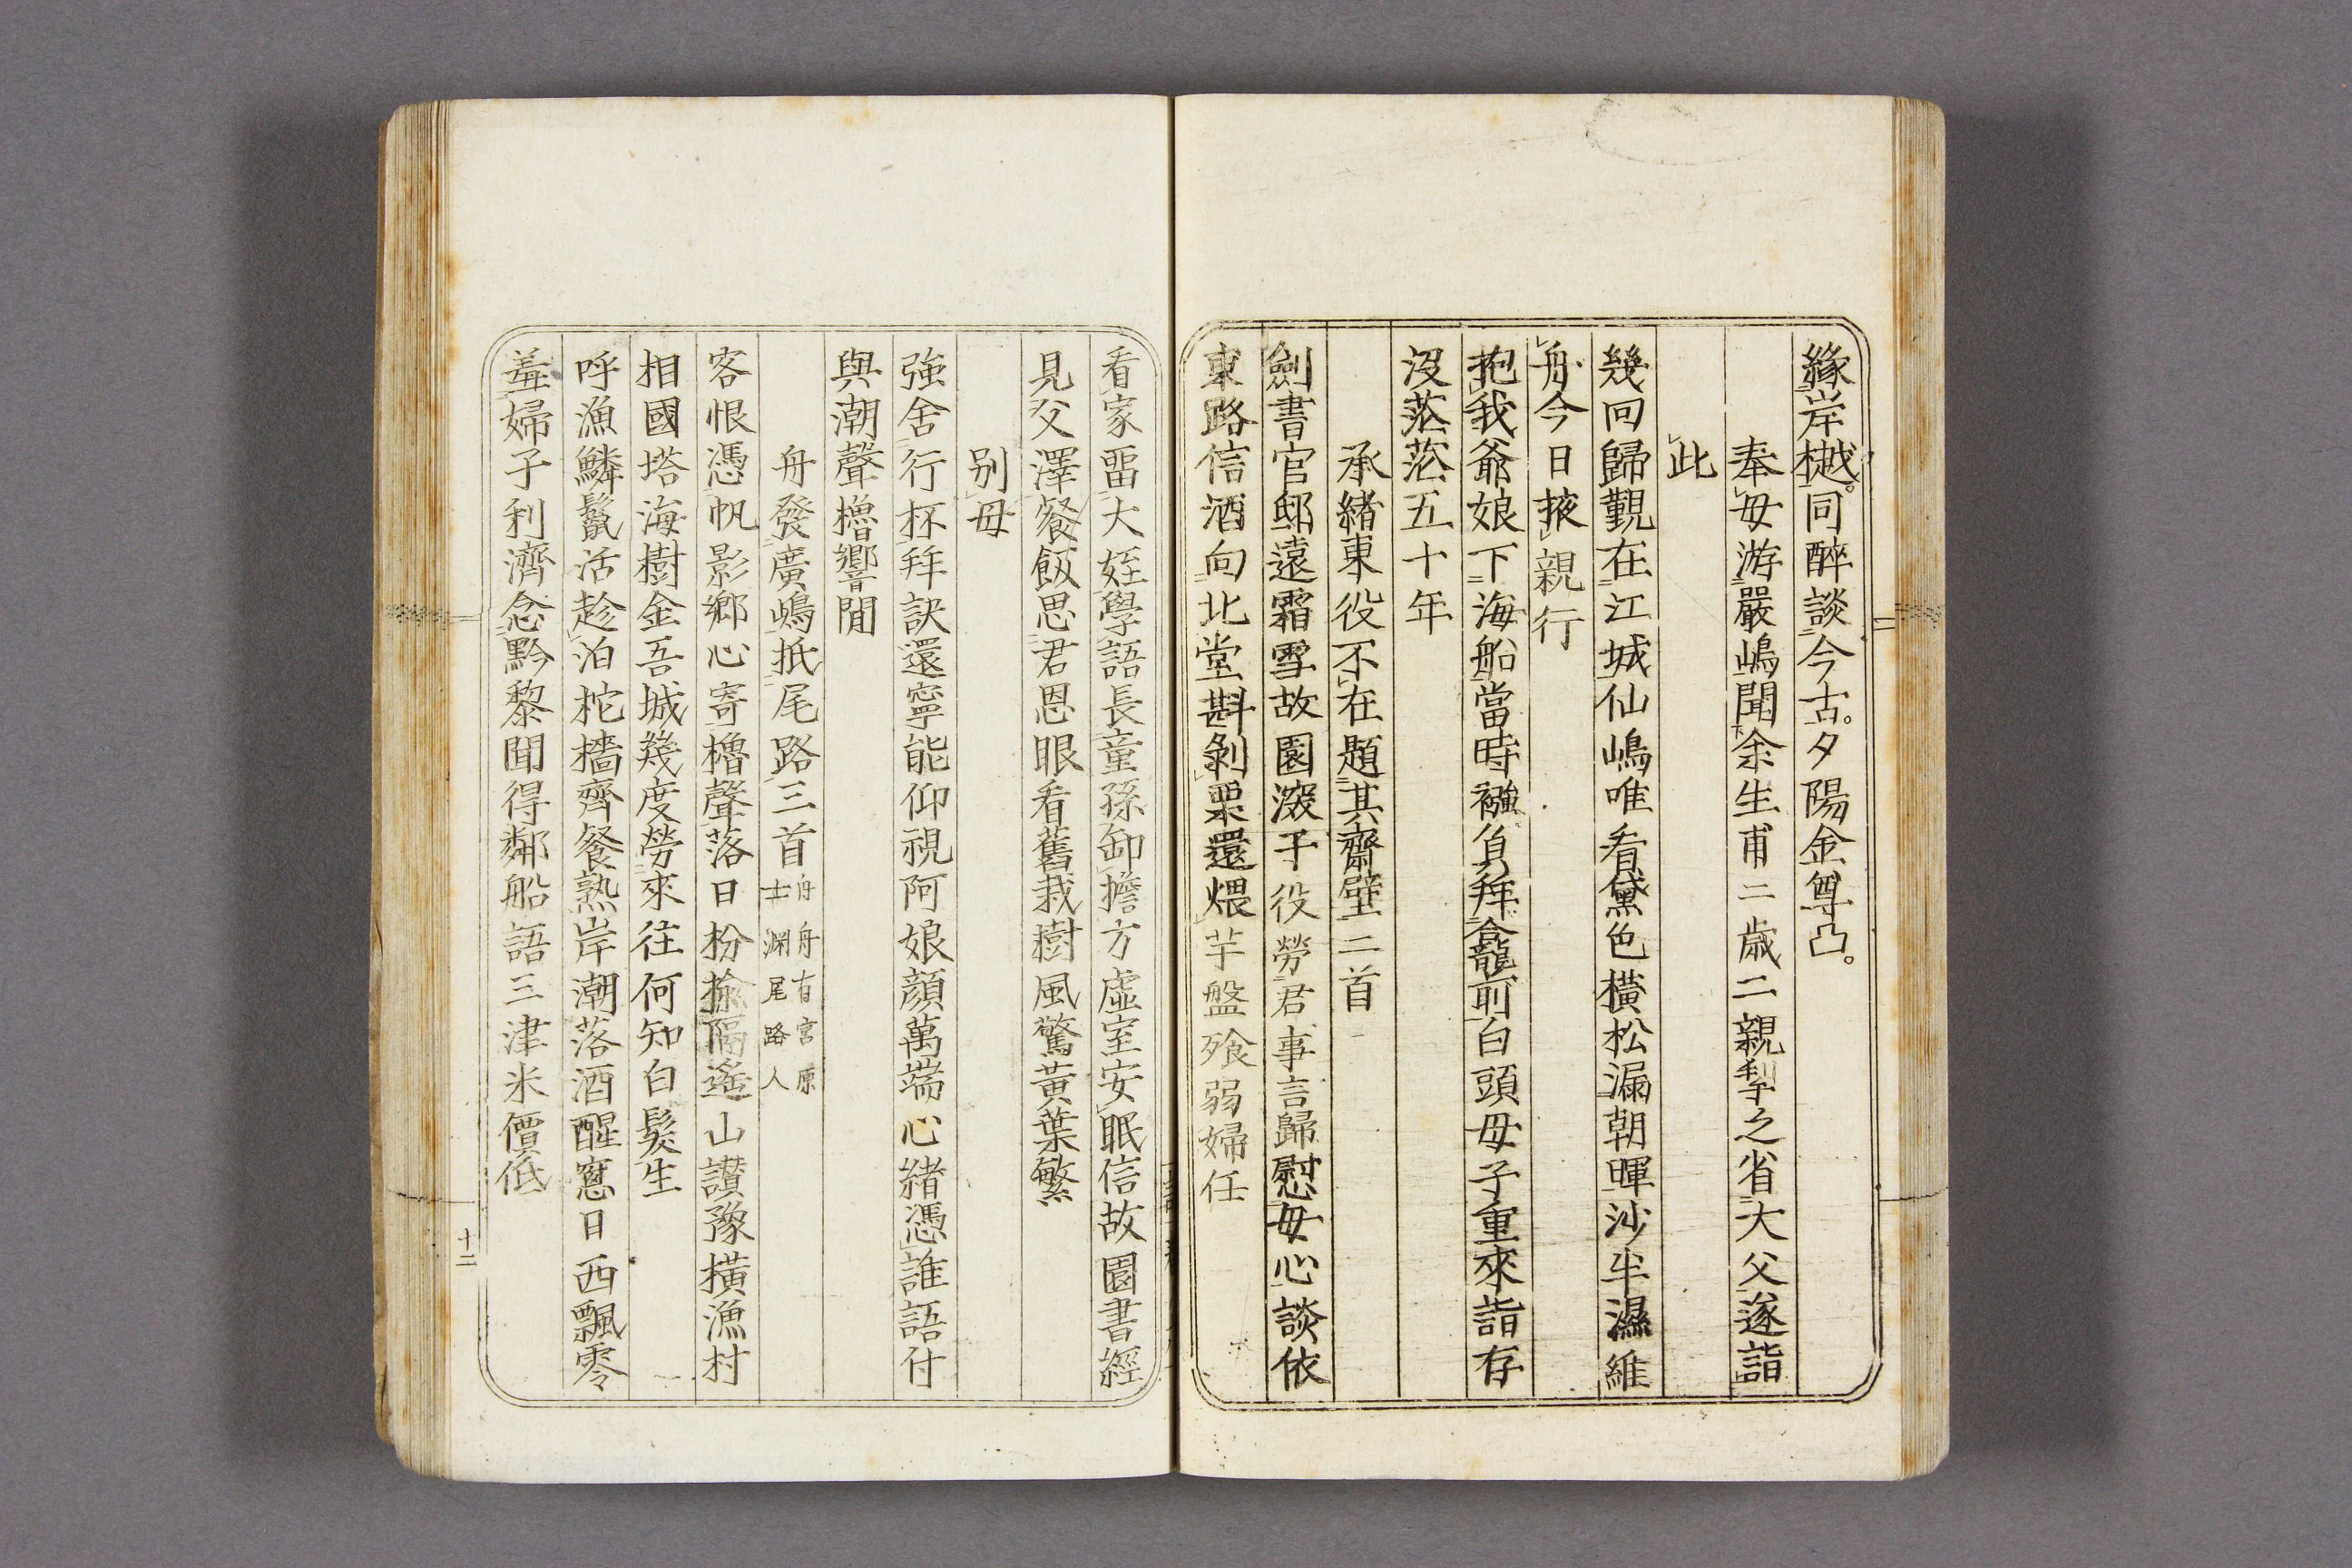 緣岸樾。同醉談今古。夕陽金尊凸。
奉母游嚴嶋聞余生甫二歳二親挈之省大父遂詣
此
幾回歸覲在江城仙嶋唯看黛色横松漏朝暉沙半濕維
舟今日掖親行
抱我爺娘下海船當時襁負拜龕前白頭母子重來詣存
沒茫茫五十年
承緒東役不在題其齋壁二首
劍書官邸遠霜雪故園深予役勞君事言歸慰母心談依
東路信酒向北堂斟剝栗還煨芋盤飱弱婦任
看家留大姪學語長童孫卸擔方虛室安眠信故園書經
見父澤餐飯思君恩眼看舊栽樹風驚黃葉繁
別母
強舍行杯拜訣還寧能仰視阿娘顏萬端心緒憑誰語付
與潮聲櫓響間
舟發廣嶋抵尾路三首
舟舟有宮原
士淵尾路人
客恨憑帆影鄉心寄櫓聲落日枌揄隔遙山讃豫橫漁村
相國塔海樹金吾城幾度勞來往何知白髮生
呼漁鱗鬣活趁泊柁檣齊餐熟岸潮落酒醒窓日西飄零
羞婦子利濟念黔黎聞得鄰船語三津米價低
十二